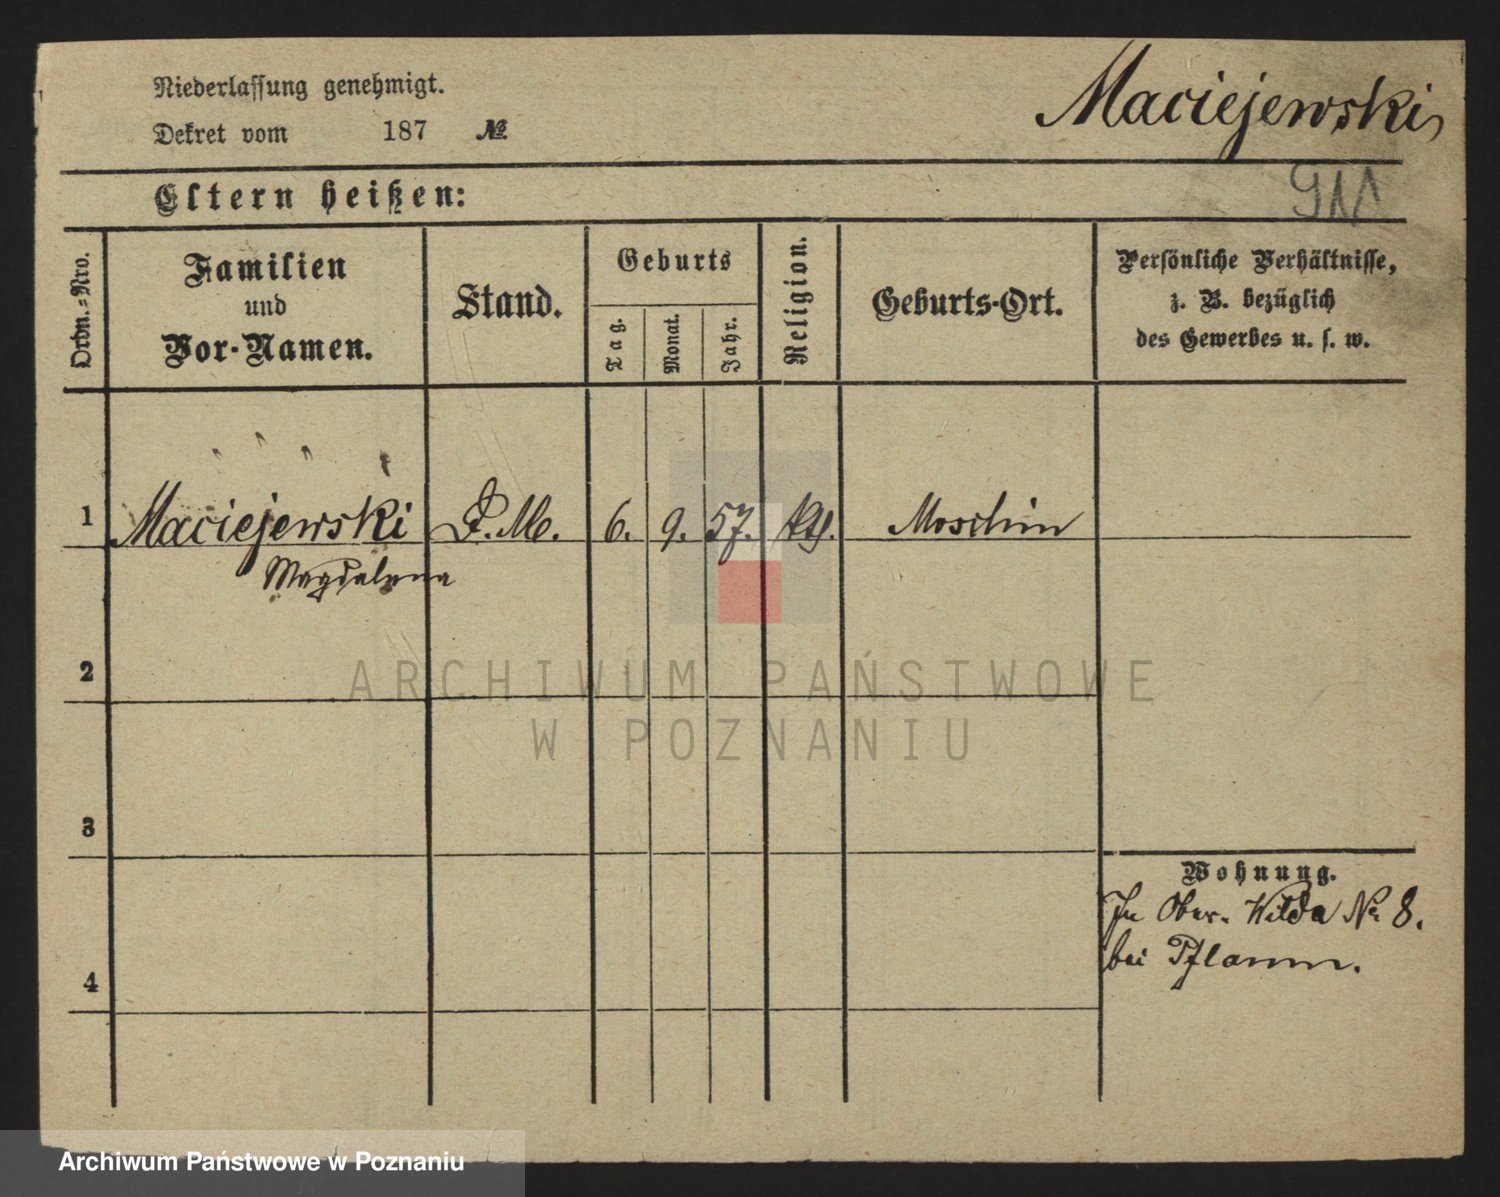 Niederlassung genehmigt.
Maciejewski
Dekret vom 187 №
Eltern heißen:
911
Ordn.-Nro.
Familien und Vor-Namen.
Stand.
Geburts
Tag.
Monat.
Jahr.
Religion.
Geburts-Ort.
Persönliche Verhältnisse,
z. B. bezüglich
des Gewerbes u. s. w.
1 Maciejewski D. M. 6. 9. 57. kth. Moschin
Magdalena
2
3
4
Wohnung.
In Ober-Wilda No 8.
bei Pflaum.
ARCHIWUM PAŃSTWOWE
W POZNANIU
Archiwum Państwowe w Poznaniu